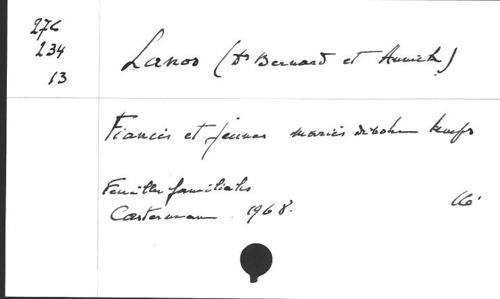 276
234
13
Lanos (Dr Bernard et Annick)
Fiancés et jeunes mariés de notre temps
Feuilles familiales
Casterman. 1968.